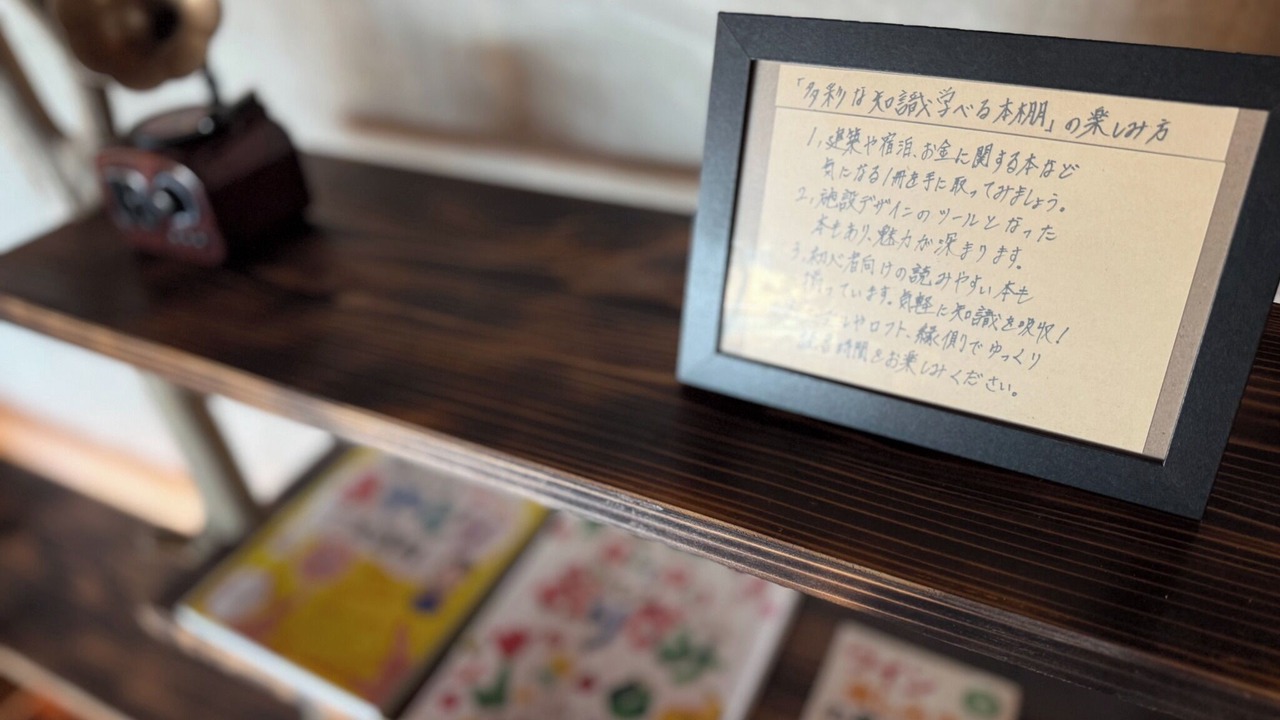 「多彩な知識学べる本棚」の楽しみ方
1, 建築や宿泊、お金に関する本など
気になる1冊を手に取ってみましょう。
2, 施設デザインのツールとなった
本もあり、魅力が深まります。
3, 初心者向けの読みやすい本も
揃っています。気軽に知識を吸収!
やロフト、縁側でゆっくり
時間をお楽しみください。